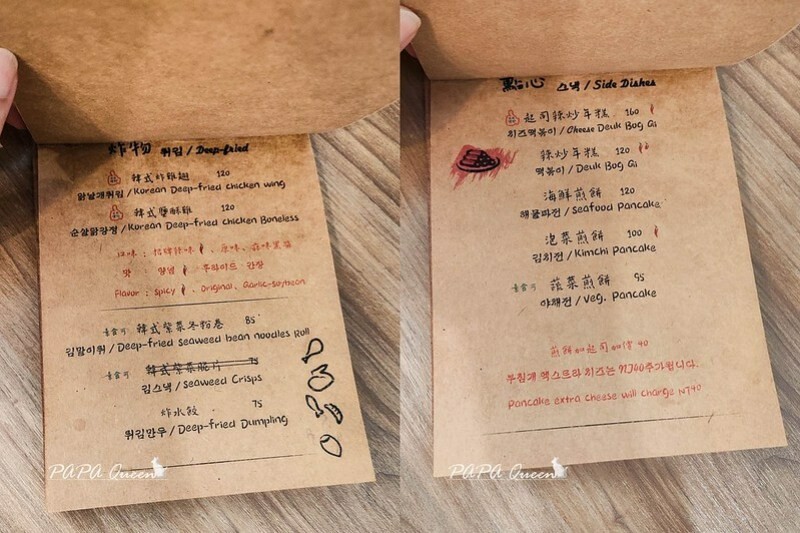 炸物 튀김 / Deep-fried
韓式炸雞翅 120
닭날개튀김 / Korean Deep-fried chicken wing
韓式鹽酥雞 120
순살닭강정 / Korean Deep-fried chicken Boneless
口味 : 招牌辣味 、原味、蒜味醬油
맛 : 양념 、 후라이드 간장
Flavor : spicy 、 Original、Garlic-soybean
素食可 韓式紫菜冬粉卷 85
김말이튀 / Deep-fried seaweed bean noodles Roll
素食可 韓式紫菜脆片 75
김스낵 / seaweed Crisps
炸水餃 75
튀김만두 / Deep-fried Dumpling
PAPA Queen
點心 스낵 / Side Dishes
起司辣炒年糕 160
치즈떡볶이 / Cheese Deuk Bog Gi
辣炒年糕 120
떡볶이 / Deuk Bog Gi
海鮮煎餅 120
해물파전 / Seafood Pancake
泡菜煎餅 100
김치전 / Kimchi Pancake
素食可 蔬菜煎餅 95
야채전 / Veg. Pancake
煎餅加起司加價 40
부침개 엑스트라 치즈는 NT40추가됩니다.
Pancake extra cheese will charge NT40
PAPA Queen